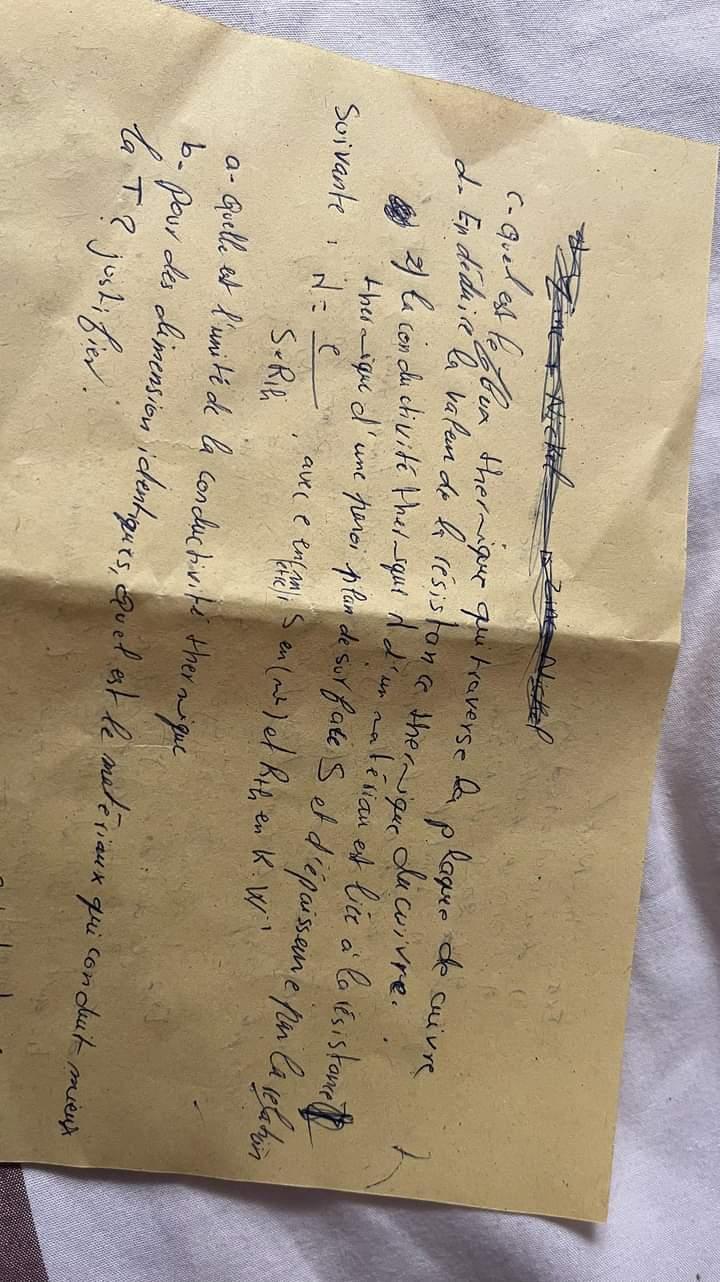 c- Quel est le flux thermique qui traverse la plaque de cuivre
d- En déduire la valeur de la résistance thermique du cuivre.
2) la conductivité thermique λ d'un matériau est liée à la résistance
thermique d'une paroi plan de surface S et d'épaisseur e par la relation
Suivante : λ = e / S×Rth , avec e en (m) S en (m²) et Rth en K.W⁻¹
a- Quelle est l'unité de la conductivité thermique
b- pour des dimension identiques, quel est le matériaux qui conduit mieux
la T? justifier.